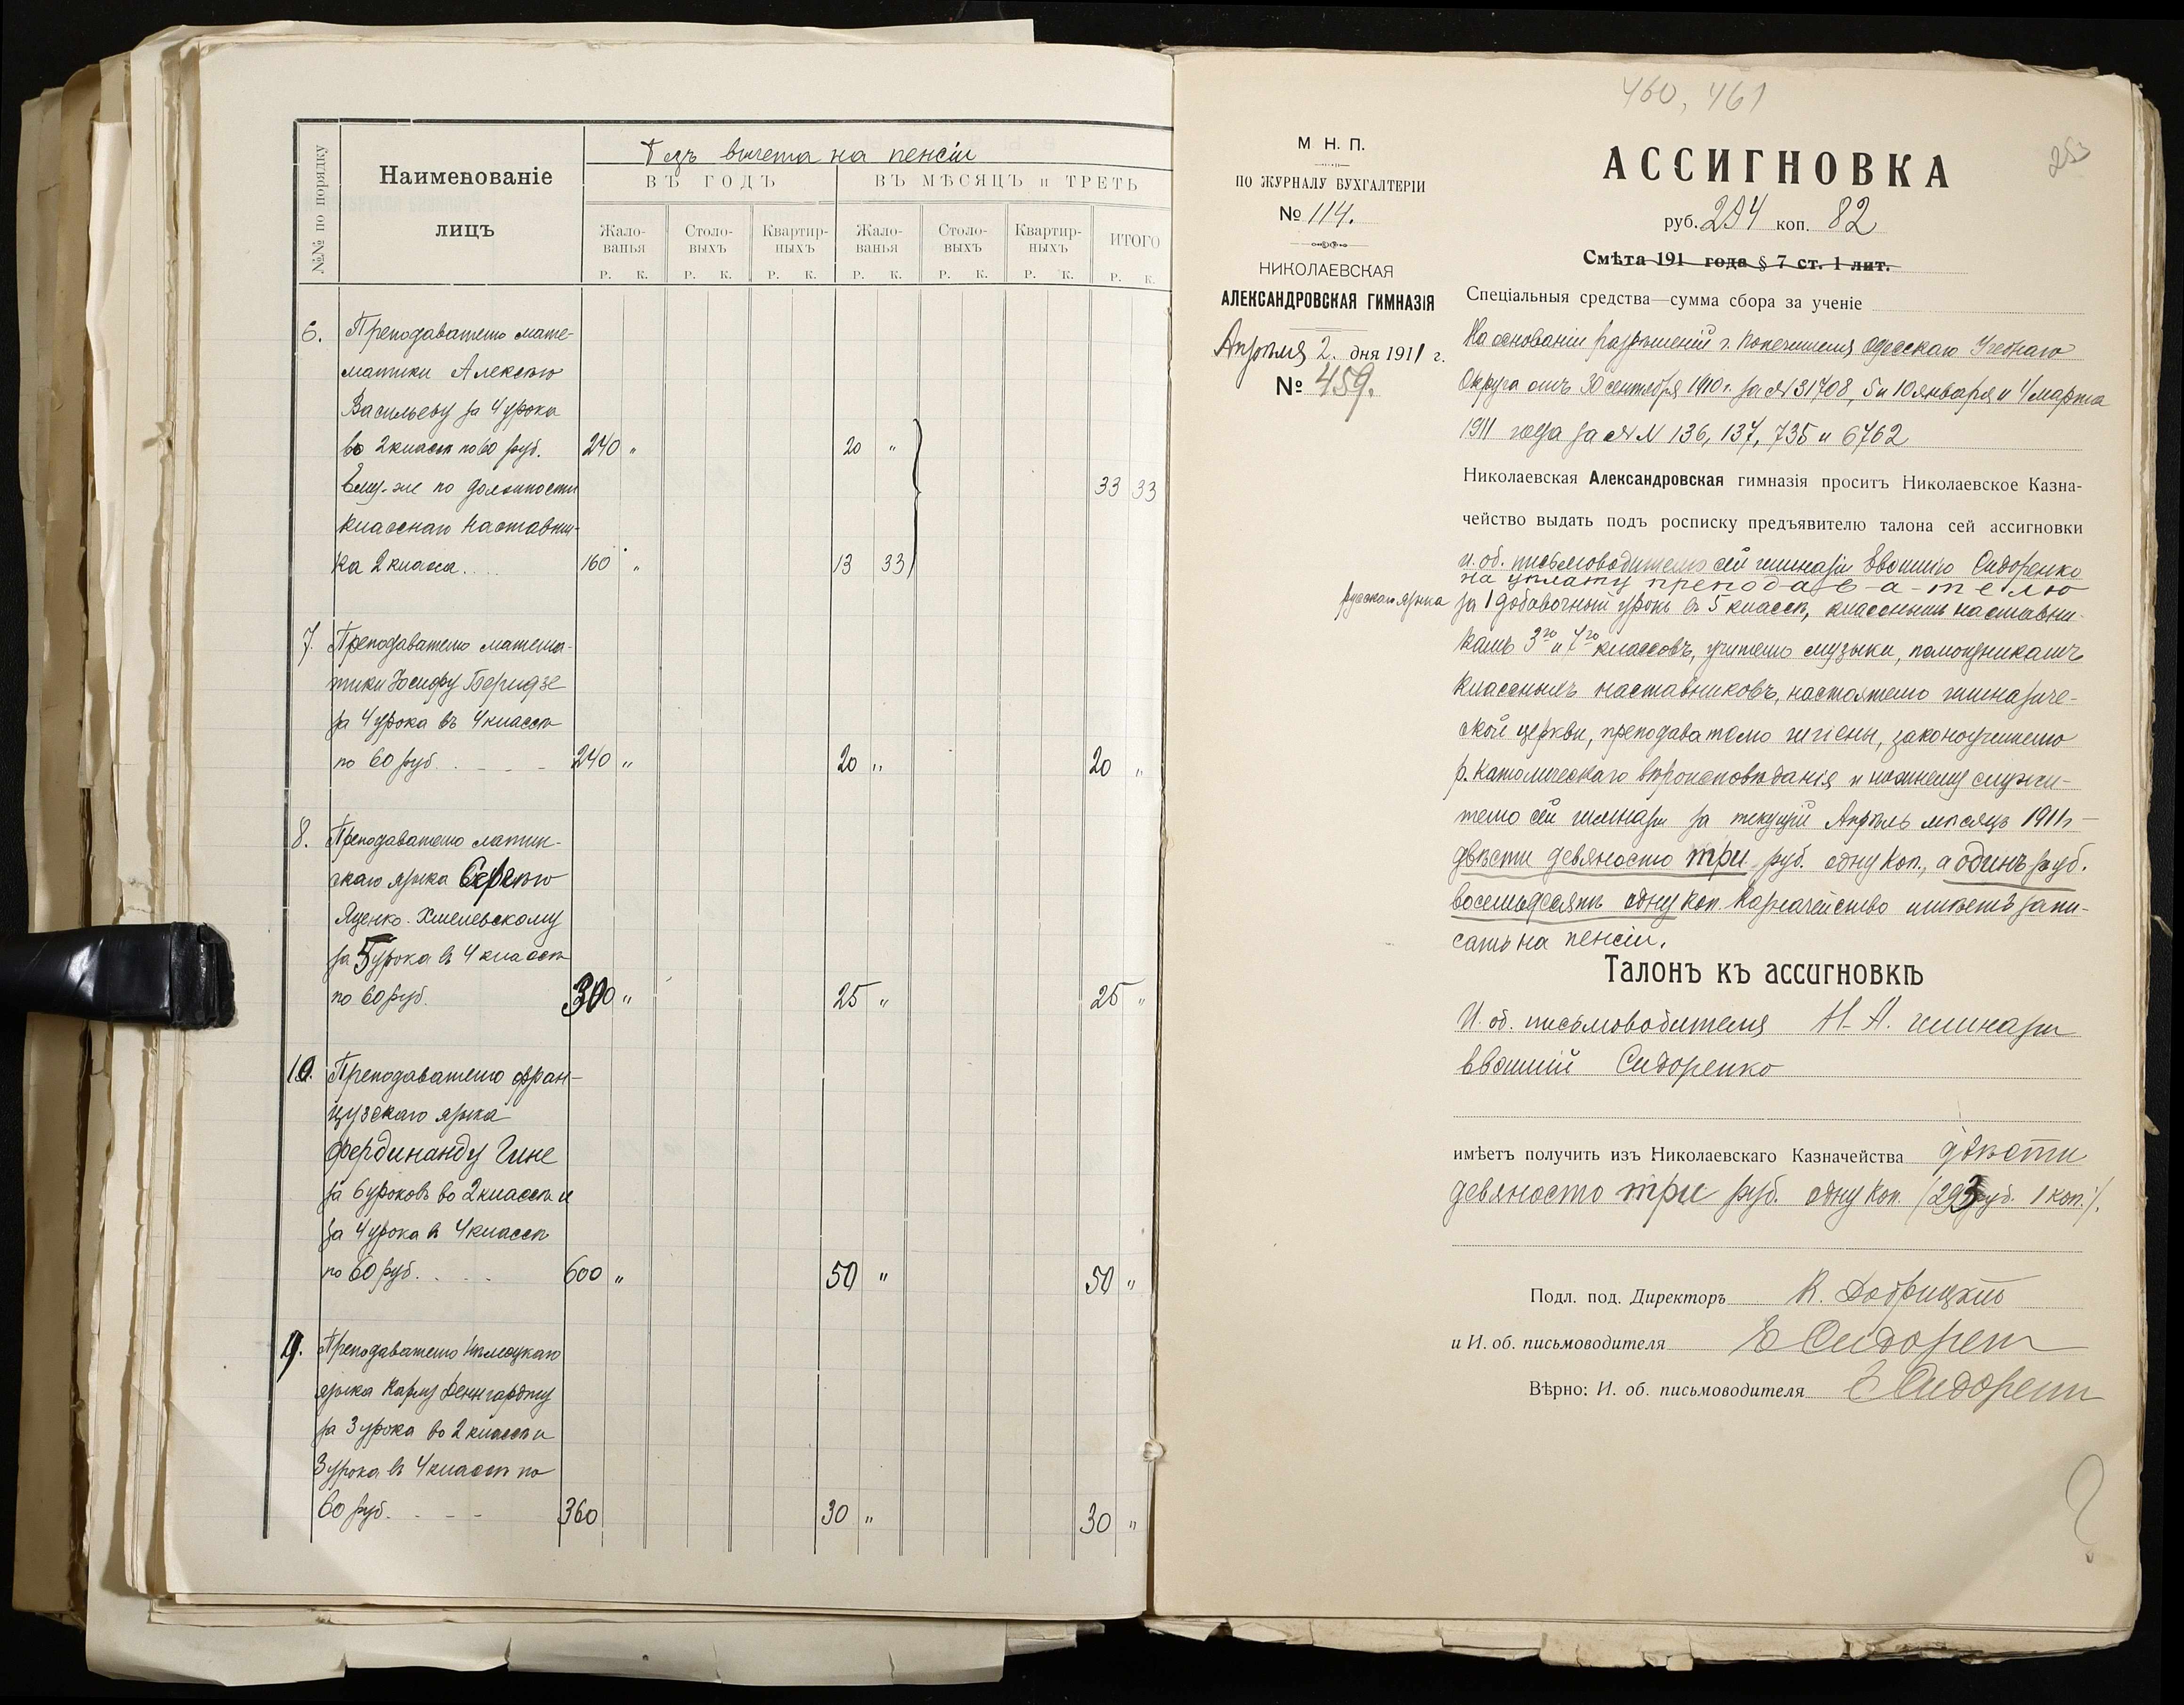 №№ по порядку
Наименованіе
лицъ
Безъ вычета на пенсіи
ВЪ ГОДЪ
ВЪ МѢСЯЦЪ и ТРЕТЬ
Жало-
ванья
Столо-
выхъ
Квартир-
ныхъ
Жало-
ванья
Столо-
выхъ
Квартир-
ныхъ
ИТОГО
Р. К. Р. К. Р. К. Р. К. Р. К. Р. К. Р. К.
6. Преподавателю мате-
матики Алексѣю
Васильеву за 4 урока
во 2 классѣ по 60 руб. 240 " 20 "
Ему-же по должности 33 33
класснаго наставни-
ка 2 класса.... 160 " 13 33
7. Преподавателю матема-
тики Іосифу Беридзе
за 4 урока въ 4 классѣ
по 60 руб. 240 " 20 " 20 "
8. Преподавателю латин-
скаго языка Сергѣю
Яценко-Хмелевскому
за 5 урока въ 4 классѣ
по 60 руб. 300 " 25 " 25 "
10. Преподавателю фран-
цузскаго языка
Фердинанду Гине
за 6 уроковъ во 2 классѣ и
за 4 урока въ 4 классѣ
по 60 руб. 600 " 50 " 50 "
9. Преподавателю нѣмецкаго
языка Карлу Деннгардту
за 3 урока во 2 классѣ и
3 урока въ 4 классѣ по
60 руб. 360 30 " 30 "
460, 461
253
М. Н. П.
ПО ЖУРНАЛУ БУХГАЛТЕРІИ
№ 114.
НИКОЛАЕВСКАЯ
АЛЕКСАНДРОВСКАЯ ГИМНАЗІЯ
Апрѣля 2. дня 1911 г.
№ 459.
АССИГНОВКА
руб. 294 коп. 82
Смѣта 191 года § 7 ст. 1 лит.
Спеціальныя средства—сумма сбора за ученіе
На основаніи разрѣшеній г. Попечителя Одесскаго Учебнаго
Округа отъ 30 сентября 1910 г. за № 31708, 5 и 10 января и 4 марта
1911 года за №№ 136, 137, 735 и 6762
Николаевская Александровская гимназія проситъ Николаевское Казна-
чейство выдать подъ росписку предъявителю талона сей ассигновки
и. об. письмоводителю сей гимназіи Евсѣвію Сидоренко
на уплату преподава-телю
русскаго языка за 1 добавочный урокъ въ 5 классѣ, класснымъ наставни-
камъ 3го и 7го классовъ, учителю музыки, помощникамъ
классныхъ наставниковъ, настоятелю гимназиче-
ской церкви, преподавателю гигіены, законоучителю
р. католическаго вѣроисповѣданія и нижнему служи-
телю сей гимназіи за текущій Апрѣль мѣсяцъ 1911 г.—
двѣсти девяносто три руб. одну коп., а одинъ руб.
восемьдесятъ одну коп. Казначейство имѣетъ запи-
сать на пенсіи.
Талонъ къ ассигновкѣ
И. об. письмоводителя Н. А. гимназіи
Сидоренко
имѣетъ получить изъ Николаевскаго Казначейства двѣсти
девяносто три руб. одну коп. /293 руб. 1 коп./.
Подл. под. Директоръ К. Добрицкій
и И. об. письмоводителя Е Сидорен
Вѣрно: И. об. письмоводителя Е Сидорен
?